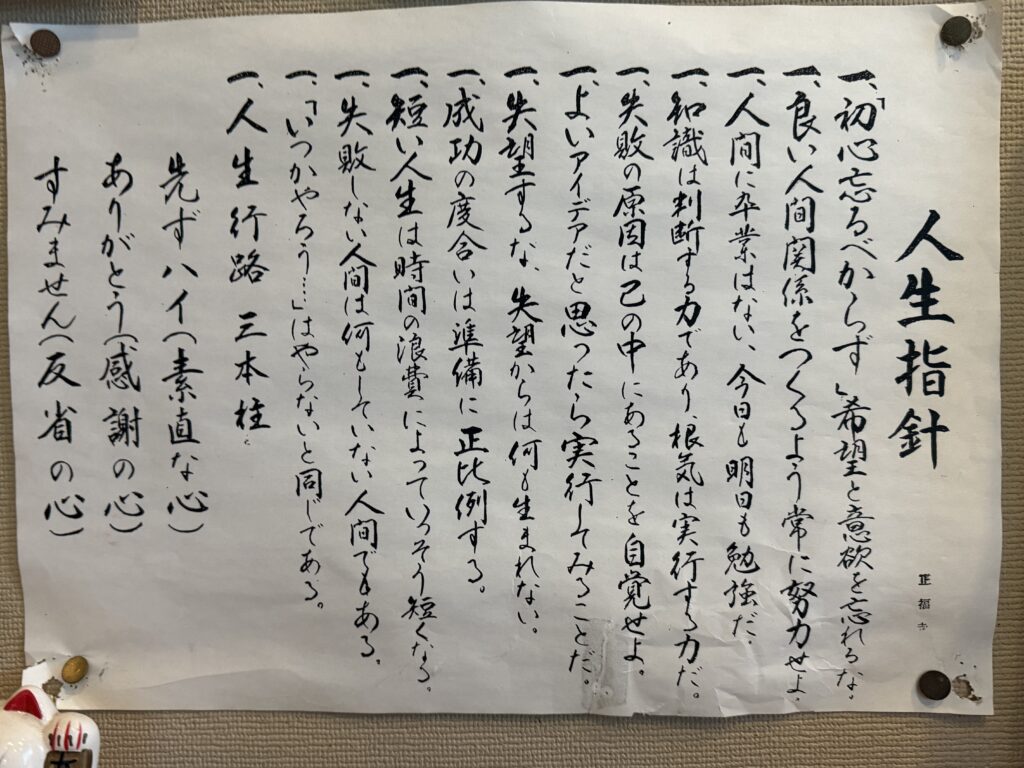 人生指針
正福寺
一、「初心忘るべからず」希望と意欲を忘れるな。
一、良い人間関係をつくるよう常に努力せよ。
一、人間に卒業はない、今日も明日も勉強だ。
一、知識は判断する力であり、根気は実行する力だ。
一、失敗の原因は己の中にあることを自覚せよ。
一、よいアイデアだと思ったら実行してみることだ。
一、失望するな、失望からは何も生まれない。
一、成功の度合いは準備に正比例する。
一、短い人生は時間の浪費によっていっそう短くなる。
一、失敗しない人間は何もしていない人間でもある。
一、「いつかやろう……」はやらないと同じである。
一、人生行路 三本柱
先ずハイ(素直な心)
ありがとう(感謝の心)
すみません(反省の心)